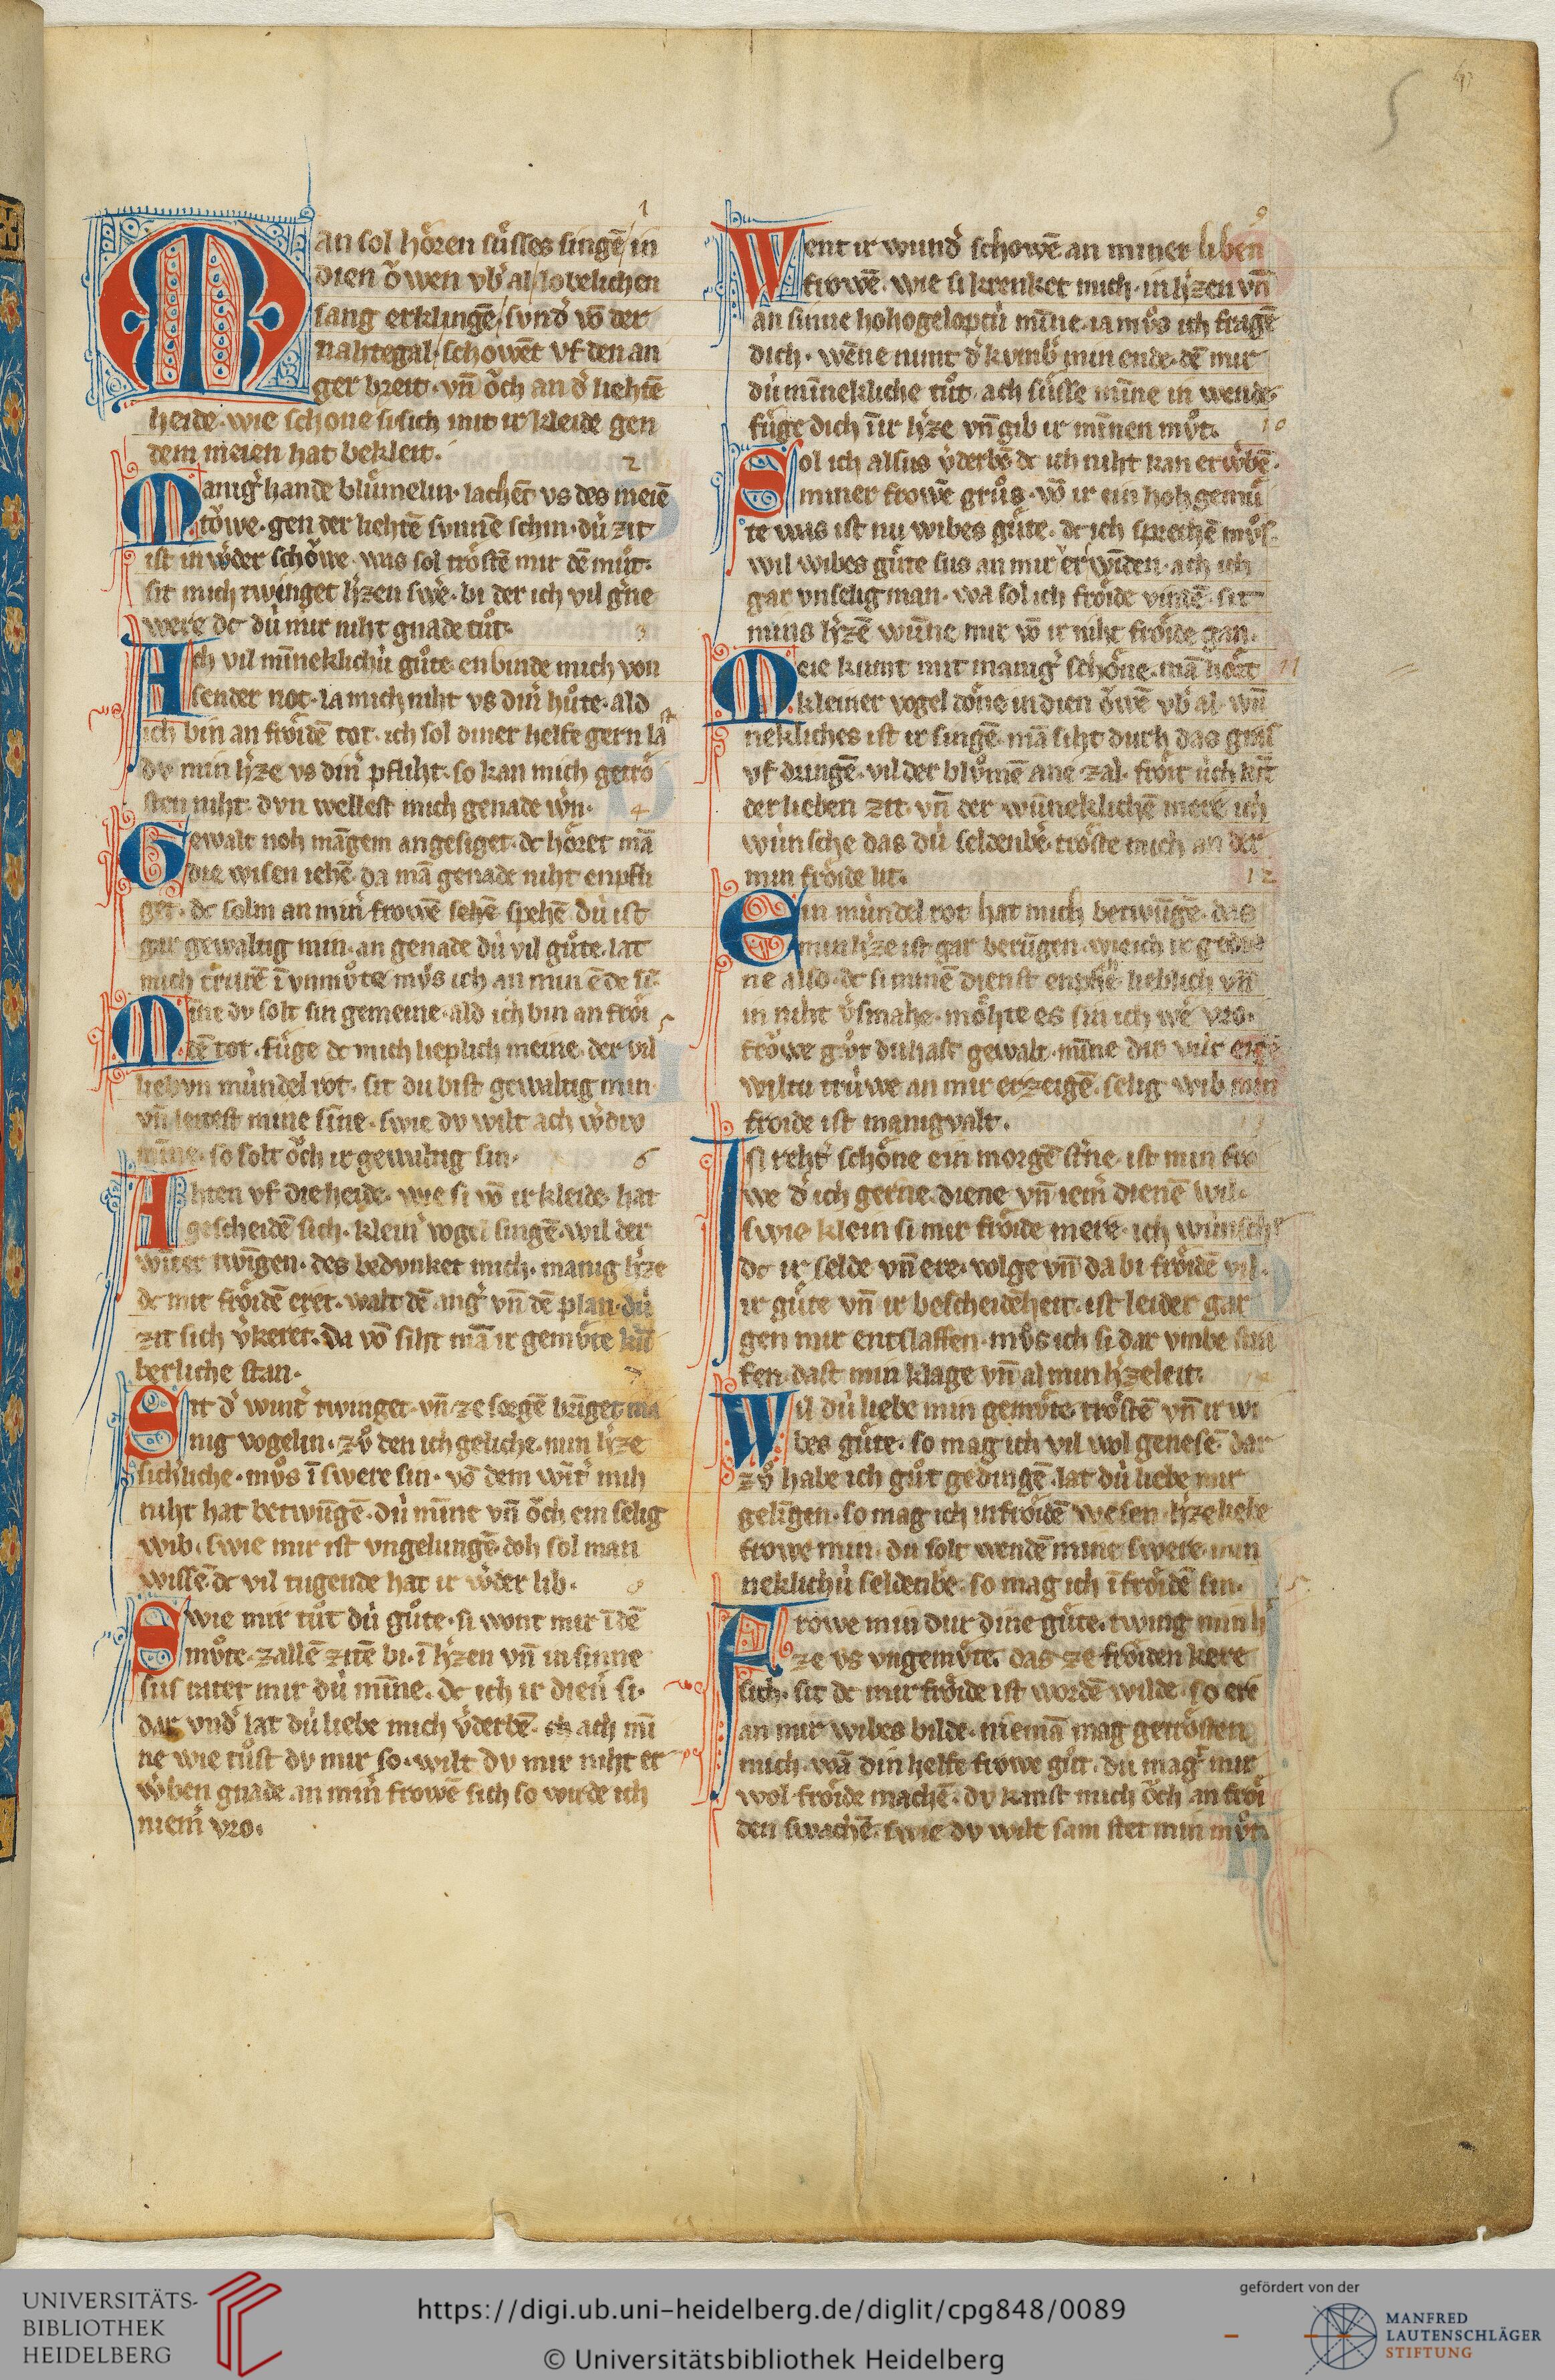 Man sol hoͤren suͤsses singē in
dien oͮwen vb̓ al lobelichen
sang erklingē sund̓ vō der
nahtegal schowēt vf den an
ger breit · vn̄ oͮch an d̓ liehtē
heide · wie schone si sich mit ir kleide gen
dem meien hat bekleit .
Manig̓ hande bluͤmelin · lachēt vs des meiē
toͮwe · gen der liehtē sunnē schin · dú zit
ist in w̓der schoͮwe · was sol troͤstē mir dē muͦt ·
sit mich twinget h̓zen sw̓e · bi der ich vil g̓ne
were dc dú mir niht gnade tuͦt ·
Ach vil mīneklichú guͤte enbinde mich von
sender not · la mich niht vs din̓ huͦte · ald
ich bin an froͤidē tot · ich sol diner helfe gern la
dv min h̓ze vs din̓ pfliht · so kan mich getroͤ
sten niht · dvn wellest mich genade w̓n · 4
Gewalt noh māgem angesiget · dc hoͤret mā
die wisen iehē · da mā genade niht enpfli
get · dc solm an min̓ frowē sehē spehē dú ist
gar gewaltig min · an genade dú vil guͤte · lat
mich trurē ī vnmuͦte muͦs ich an min ēde sī ·
Mīne dv solt sin gemeine · ald ich bin an froͤi
dē tot · fuͤge dc mich lieplich meine · der vil
liebvn múndel rot · sit du bist gewaltig min
vn̄ leitest mine sīne · swie dv wilt ach w̓dv
mīne · so solt oͮch ir gewaltig sin · 6
Ahten vf die heide · wie si vō ir kleide · hat
gescheidē sich · klein̓ vogel singē · wil der
wīter twīgen · des bedvnket mich · manig h̓ze
dc mit froͤidē eret · walt dē ang̓ vn̄ dē plan · dú
zit sich v̓keret · da vō siht mā ir gemuͤte
berliche stan · 7
Sit d̓ wint̓ twinget · vn̄ ze sorgē bīget ma
nig vogelin · zuͦ den ich geliche · min h̓ze
sich̓liche · muͦs ī swere sin · vō dem wīt̓ mih
niht hat betwūgē · dú mīne vn̄ oͮch ein selig
wib · swie mir ist vngelungē doh sol man
wissē dc vil tugende hat ir w̓der lib ·
Swie mir tuͦt dú guͤte · si wont mir ī dē
muͦte · zallē zitē bi · ī h̓zen vn̄ in sinne
sus ratet mir dú mīne · dc ich ir dien̓ si ·
dar vnd̓ lat dú liebe mich v̓derbē · ach mī
ne wie tuͦst dv mir so · wilt dv mir niht er
w̓ben gnade an min̓ frowē sich so wirde ich
niem̓ vro ·
Went ir wund̓ schowē an miner liben
frowē · wie si krenket mich · in h̓zen vn̄
an sinne hohogeloptú mīne · ia muͦs ich fragē
dich · wēne nimt d̓ kvmb̓ min ende · dē mir
dú mīnekliche tuͦt · ach suͤsse mīne in wende
fuͤge dich īir h̓ze vn̄ gib ir mīnen muͦt · 10
Sol ich alsus v̓derbē dc ich niht kan erw̓bē ·
miner frowē gruͦs · vō ir ein hohgemuͤ
te was ist nu wibes guͤte · dc ich sprechē muͦs ·
wil wibes guͤte sus an mir erwīden · ach ich
gar vnselig man · wa sol ich froͤide vindē · sit
mins h̓zē wūne mir vō ir niht froͤide gan ·
Meie kumt mit manig̓ schoͤne · mā hoͤrt 11
kleiner vogel doͤne in dien oͮwē vb̓ al · wū
nekliches ist ir singē · mā siht durh das gras
vf dringē · vil der bluͦmē ane zal · froͤit úch
der lieben zit · vn̄ der wūneklichē mere ich
wúnsche das dú seldenb̓e · troͤste mich an der
min froͤide lit · 12
Ein múndel rot hat mich betwūgē · das
min h̓ze ist gar berūgen · wie ich ir gedie
ne also · dc si minē dienst enpfhe lieblich vn̄
in niht v̓smahe · moͤhte es sin ich we vro ·
froͮwe guͦt du hast gewalt · mīne dir
wiltu trúwe an mir erzeigē · selig wib min
froide ist manigvalt ·
Ist reht̓ schoͤne ein morgē st̓ne · ist min fro
we d̓ ich gerne diene vn̄ iem̓ dienē wil ·
swie klein si mir froͤide mere · ich wúnsche
dc ir selde vn̄ ere · volge vn̄ da bi froͤidē vil ·
ir guͤte vn̄ ir bescheidēheit · ist leider gar
gen mir entslaffen · muͦs ich si dar vmbe stra
fen · dast min klage vn̄ al min h̓zeleit ·
Wil dú liebe min gemuͤte troͤstē vn̄ ir wi
bes guͤte · so mag ich vil wol genesē · dar
zuͦ habe ich guͦt gedingē · lat dú liebe mir
gelīgen · so mag ich in froͤidē wesen · h̓ze liebe
frowe min · du solt wendē mine swere · min
neklichú seldenb̓e · so mag ich ī froͤidē sin ·
Frowe min dur dine guͤte · twing min h̓
ze vs vngemuͤte · das ze froͤiden kere
sich · sit dc mir froͤide ist wordē wilde · so ere
an mir wibes bilde · niemā mag getroͤsten
mich · wā din helfe frowe guͦt · du magt mir
wol froͤide machē · dv kanst mich oͮch an froͤi
den swachē · swie dv wilt sam stet min muͦt ·
UNIVERSITÄTS-
BIBLIOTHEK
HEIDELBERG
https://digi.ub.uni-heidelberg.de/diglit/cpg848/0089
© Universitätsbibliothek Heidelberg
gefördert von der
MANFRED
LAUTENSCHLÄGER
STIFTUNG